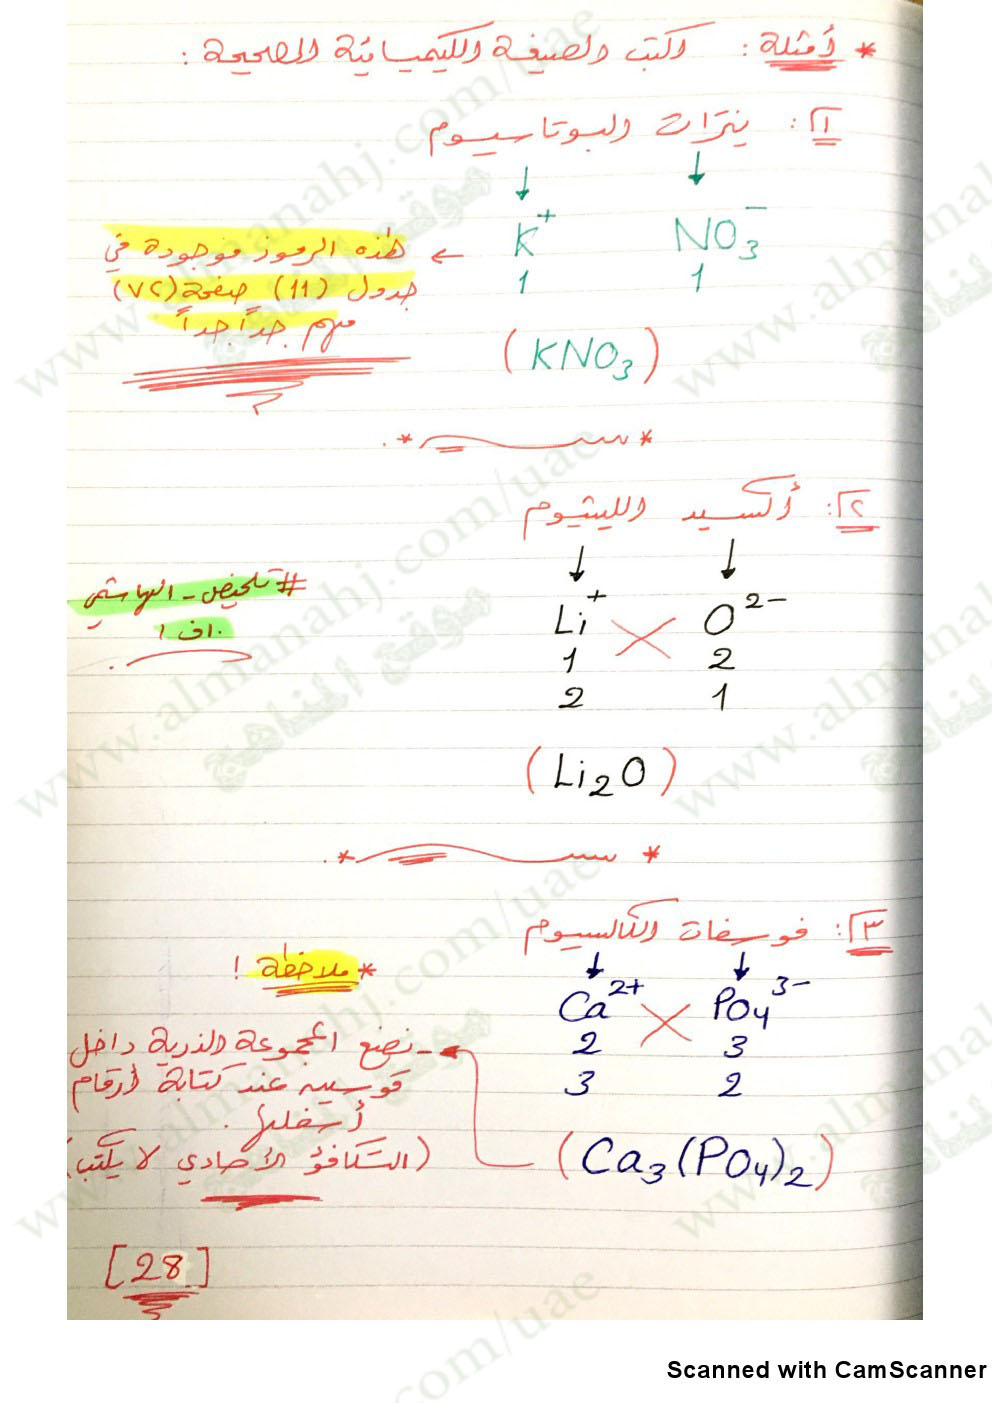 * أمثلة : اكتب الصيغة الكيميائية الصحيحة :
١ : نترات البوتاسيوم
↓ ↓
K⁺ NO₃⁻
1 1
← هذه الرموز موجودة في
جدول (11) صفحة (٧٢)
مهم جداً جداً
(KNO₃)
٢ : أكسيد الليثيوم
↓ ↓
Li⁺ O²⁻
1 2
2 1
# تلخيص - الهاشمي
(Li₂O)
٣ : فوسفات الكالسيوم
↓ ↓
Ca²⁺ PO₄³⁻
2 3
3 2
* ملاحظة !
- نضع المجموعة الذرية داخل
قوسين عند كتابة أرقام
أسفلها .
(التكافؤ الأحادي لا يكتب)
(Ca₃(PO₄)₂)
[28]
www.almanahj.com/uae
موقع المناهج
Scanned with CamScanner